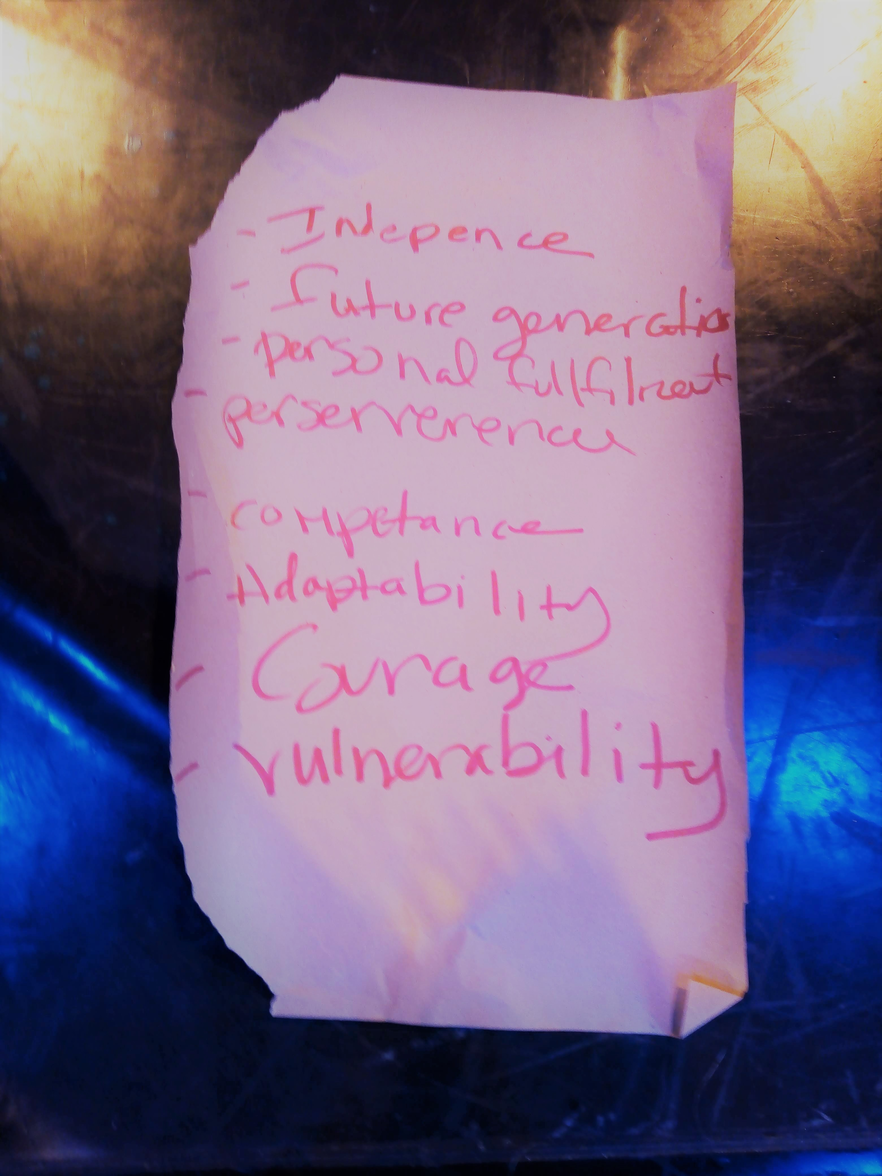 - Indepence
- future generation
- personal fullfilment
- perserverence
- competance
- Adaptability
- Courage
- vulnerability